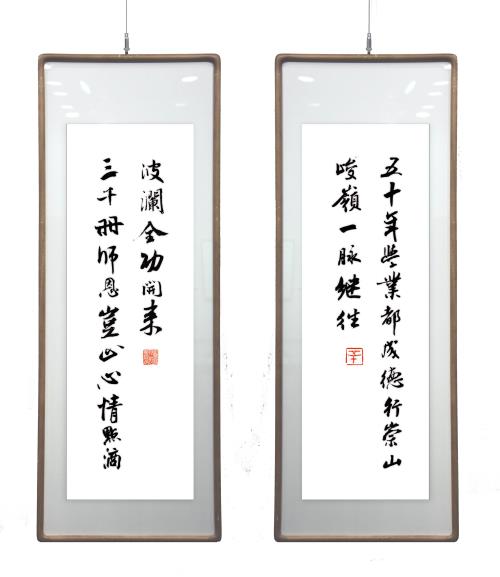 五十年學業都成德行崇山
峻嶺一脉继往
三千册师恩豈止心情點滴
波瀾全功開来